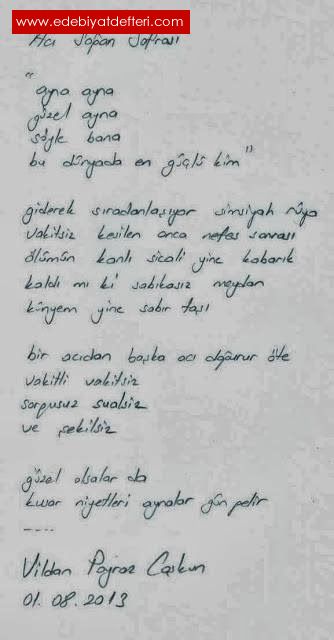 www.edebiyatdefteri.com
Acı Sapan Safrası
"
ayna ayna
güzel ayna
söyle bana
bu dünyada en güçlü kim"
giderek sıradanlaşıyor simsiyah rüya
vakitsiz kesilen onca nefes sonrası
ölümün kanlı sicili yine kabarık
kaldı mı ki sabıkasız meydan
künyem yine sabır taşı
bir acıdan başka acı doğurur öte
vakitli vakitsiz
sorgusuz sualsiz
ve şekilsiz
güzel olsalar da
kusar niyetleri aynalar gün gelir
----
Vildan Poyraz Coşkun
01.08.2013